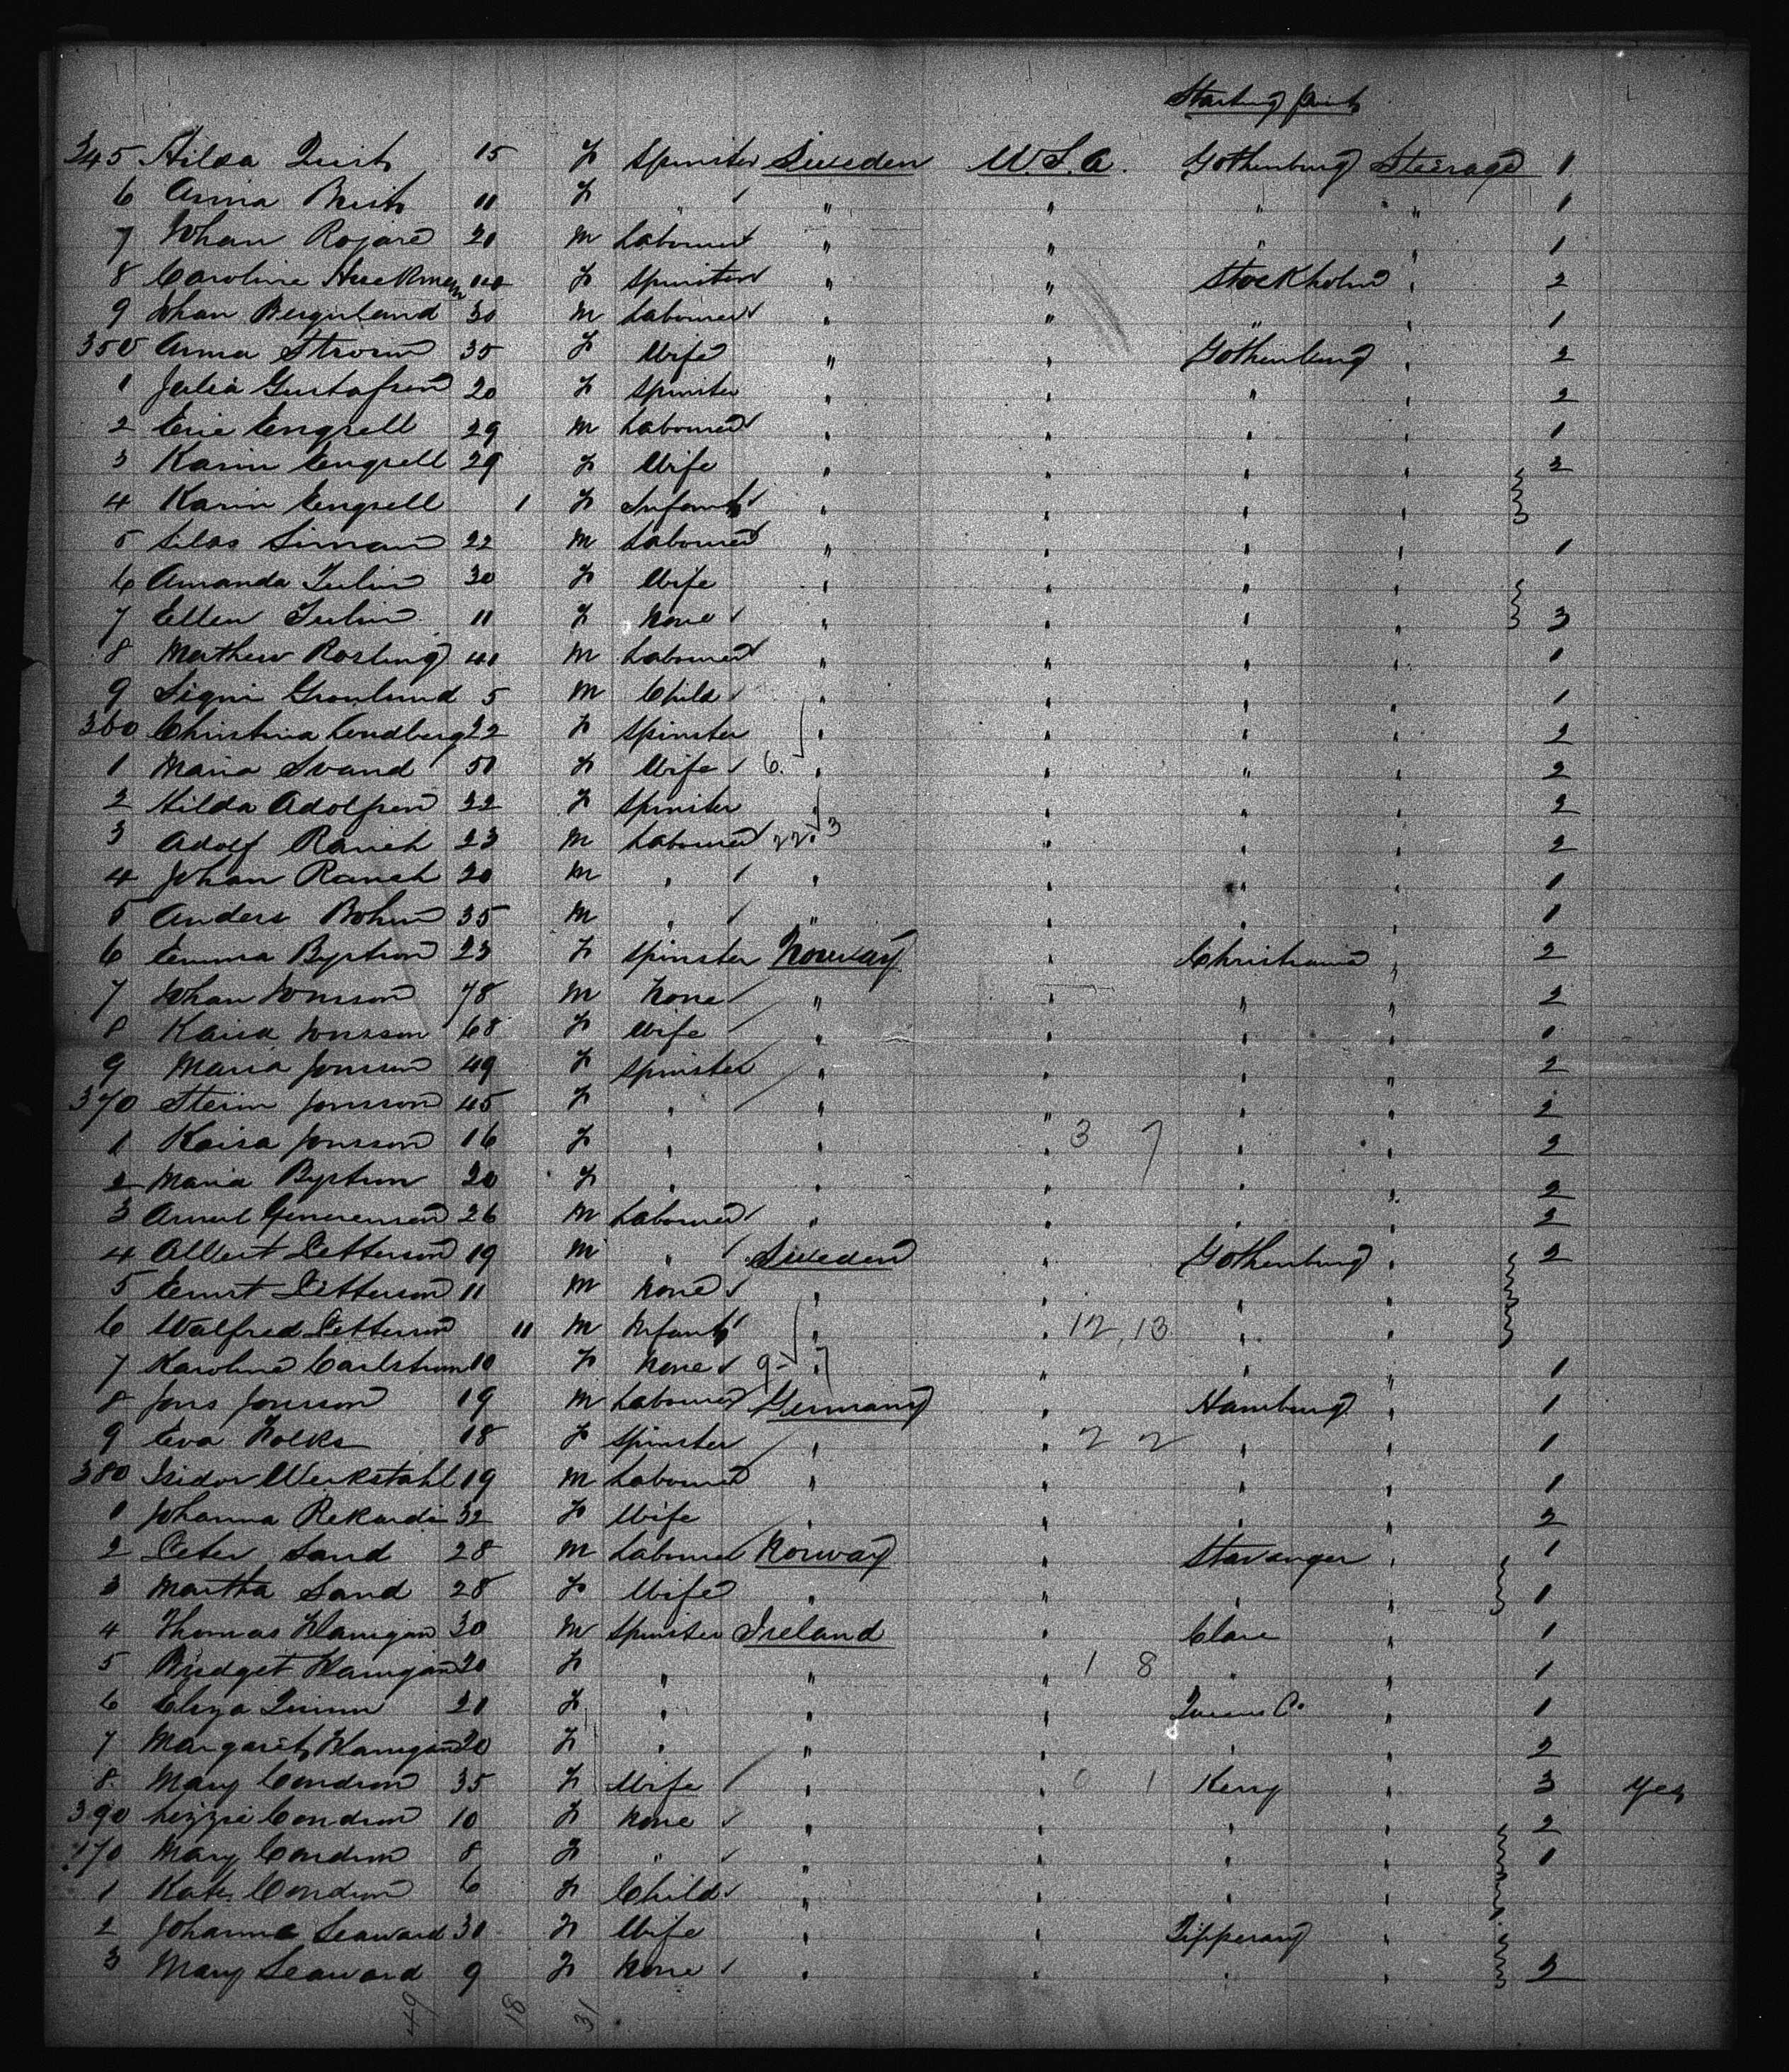 Starting point
345 Hilda Quist 15 F Spinster Sweden U.S.A. Gothenburg Steerage 1
6 Anna 11 F " " " " " 1
7 Johan 20 M Labourer " " " " 1
8 Caroline 40 F Spinster " " Stockholm " 2
9 Johan 30 M Labourer " " " " 1
350 Anna Strom 35 F Wife " " Gothenburg " 2
1 Julia Gustafson 20 F Spinster " " " " 2
2 Eric Engsell 29 M Labourer " " " " 1
3 Karin Engsell 29 F Wife " " " " 2
4 Karin Engsell 1 F Infant " " " "
5 Silas Siman 22 M Labourer " " " " 1
6 Amanda Julin 30 F Wife " " " "
7 Ellen Julin 11 F None " " " " 3
8 Mathew Rosling 40 M Labourer " " " " 1
9 Signi Gronlund 5 M Child " " " " 1
360 Christina Lundberg 22 F Spinster " " " " 2
1 Maria Svand 50 F Wife 6 " " " " 2
2 Hilda Adolfsen 22 F Spinster " " " " 2
3 Adolf Ranch 23 M Labourer 22 " 3 " " " 2
4 Johan Ranch 20 M " " " " " 1
5 Anders Bohm 35 M " " " " " 1
6 Emma Bystrom 23 F Spinster Norway " Christiania " 2
7 Johan Jonsson 78 M None " " " " 2
8 Kaisa Jonsson 68 F Wife " " " " 1
9 Maria Jonsson 49 F Spinster " " " " 2
370 Jonsson 45 F " " " " " 2
1 Kaisa Jonsson 16 F " " " 3 7 " " 2
2 Maria Bystrom 20 F " " " " " 2
3 26 M Labourer " " " " 2
4 Albert Petterson 19 M " Sweden " Gothenburg " 2
5 Ernst Petterson 11 M None " " " "
6 Walfred Petterson 11 M Infant " " 12,13 " "
7 Karolina Carlstrom 10 F None 9 " 7 " " " 1
8 Jons Jonsson 19 M Labourer Germany " Hamburg " 1
9 Eva Folks 18 F Spinster " " 2 2 " " 1
380 Isidor Werkstahl 19 M Labourer " " " " 1
1 Johanna 32 F Wife " " " " 2
2 Peter Sand 28 M Labourer Norway " Stavanger " 1
3 Martha Sand 28 F Wife " " " " 1
4 Thomas Hanigan 30 M Spinster Ireland " Clare " 1
5 Bridget Hanigan 20 F " " " 1 8 " " 1
6 Eliza Quinn 20 F " " " Queens Co " 1
7 Margaret Hanigan 20 F " " " " " 2
8 Mary Condron 35 F Wife " 0 1 Kerry " 3 Yes
390 Lizzie Condron 10 F None " " " " 2
170 Mary Condron 8 F " " " " " 1
1 Kate Condron 6 F Child " " " "
2 Johanna Seaward 30 F Wife " " Tipperary "
3 Mary Seaward 9 F None " " " " 2
49 18 31